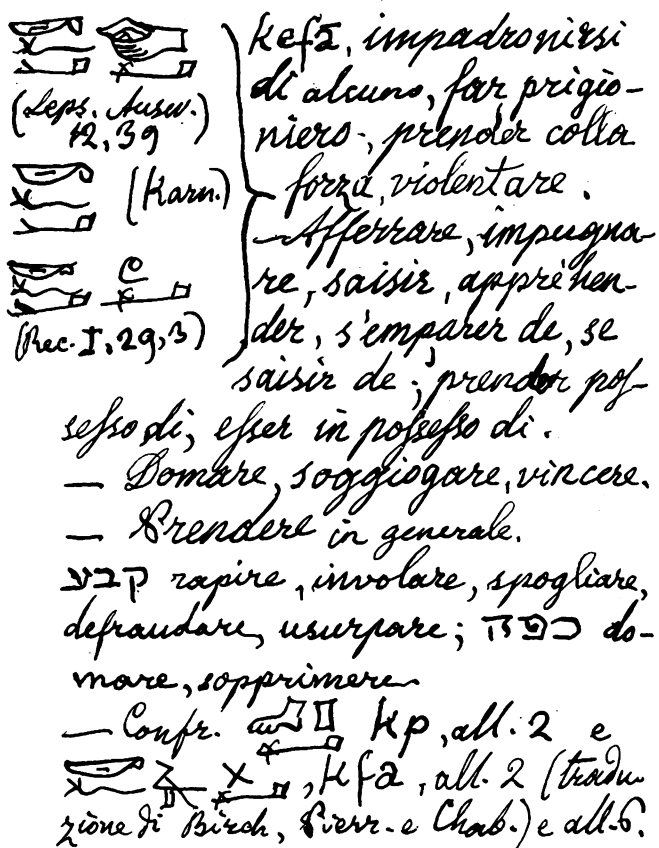 kefā, impadronirsi
di alcuno, far prigio-
niero, prender colla
forza, violentare.
(Leps. Ausw.
12, 39)
(Karn.)
(Rec. I, 29, 3)
— Afferrare, impugna-
re, saisir, appréhen-
der, s'emparer de, se
saisir de; prender pos-
sesso di, esser in possesso di.
— Domare, soggiogare, vincere.
— Prendere in generale.
קבע rapire, involare, spogliare,
defraudare, usurpare; כפה do-
mare, sopprimere
— Confr. kp, all. 2 e
, kfa, all. 2 (tradu-
zione di Birch, Pierr. e Chab.) e all. 6.